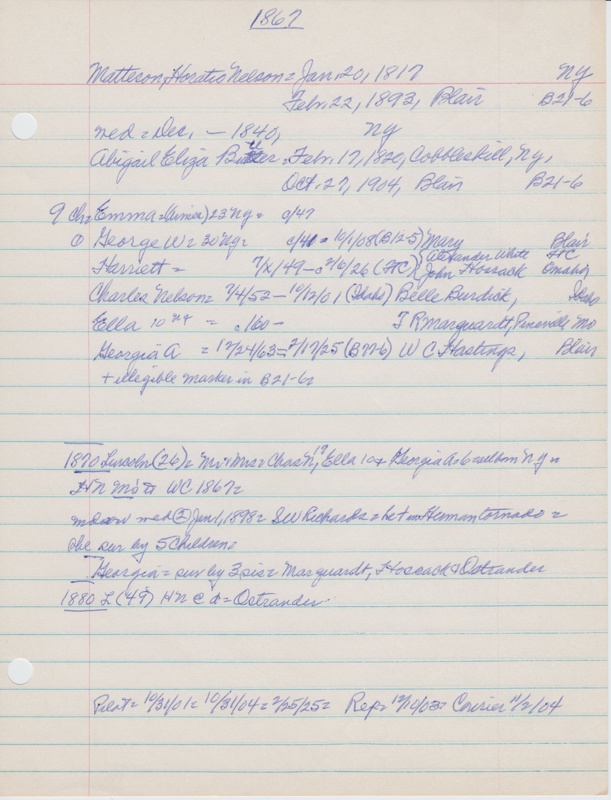 1867
Matteson, Horatio Nelson = Jan. 20, 1817 NY
Febr. 22, 1893, Blair B21-6
med = Dec, - 1840, NY
Abigail Eliza = Febr. 17, 1820, Cobbleskill, Ny,
Oct. 27, 1904, Blair B21-6
9 ch = Emma = 23 Ny = c/47
George W = 30 Ny = - 10/1/08 (B12-5) Mary Blair
Harriett = 7/x/49 - 2/6/26 (FC) { Alexander White FC
John Hossack Omaha
Charles Nelson = 7/4/52 - 10/2/01 (Idaho) Belle Burdick, Idaho
Ella 10 NY = c/60 - T R Marquardt, Pineville Mo
Georgia A = 12/24/63 = 2/17/25 (B77-6) W C Hastings, Blair
+ illegible marker in B21-6
1870 Lincoln (26) = Mr & Mrs = Chas N, 19 Ella 10 + Georgia A = 6 = all born Ny =
HN WC 1867 =
med ② Jan 1, 1898 = S W Richards = in Herman tornado =
she sur by 5 children =
Georgia = sur by 3 sis = Marquardt, Hossack & Ostrander
1880 L (49) HN C = Ostrander
Pilot = 10/31/01 = 10/31/04 = 2/25/25 = Rep = 12/10/03 = Courier 11/2/04